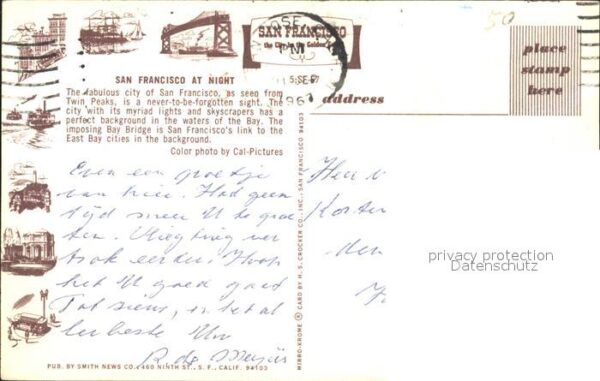 SAN FRANCISCO
the City by the Golden
SAN FRANCISCO AT NIGHT
The fabulous city of San Francisco, as seen from
Twin Peaks, is a never-to-be-forgotten sight. The
city with its myriad lights and skyscrapers has a
perfect background in the waters of the Bay. The
imposing Bay Bridge is San Francisco's link to the
East Bay cities in the background.
Color photo by Cal-Pictures
50
place
stamp
here
address
Even een groetje
van hier. Had geen
tijd meer U te groe
ten. Vliegtuig ver
trok eerder. Hoop
het U goed gaat
Tot ziens, en het al
lerbeste Uw
R de Meyier
PUB. BY SMITH NEWS CO., 460 NINTH ST., S. F., CALIF. 94103
MIRRO-KROME ® CARD BY H. S. CROCKER CO., INC., SAN FRANCISCO, CALIF. 94103
Heer
den
privacy protection
Datenschutz